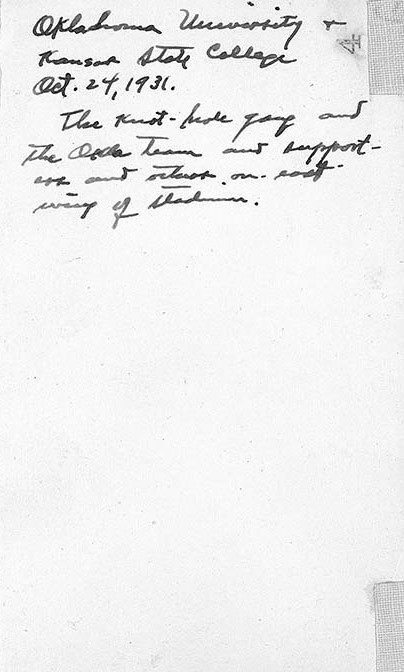 Oklahoma University &
Kansas State College
Oct. 24, 1931.
The Knot-hole gang and
the Okla team and support-
ers and others on east
wing of stadium.
4